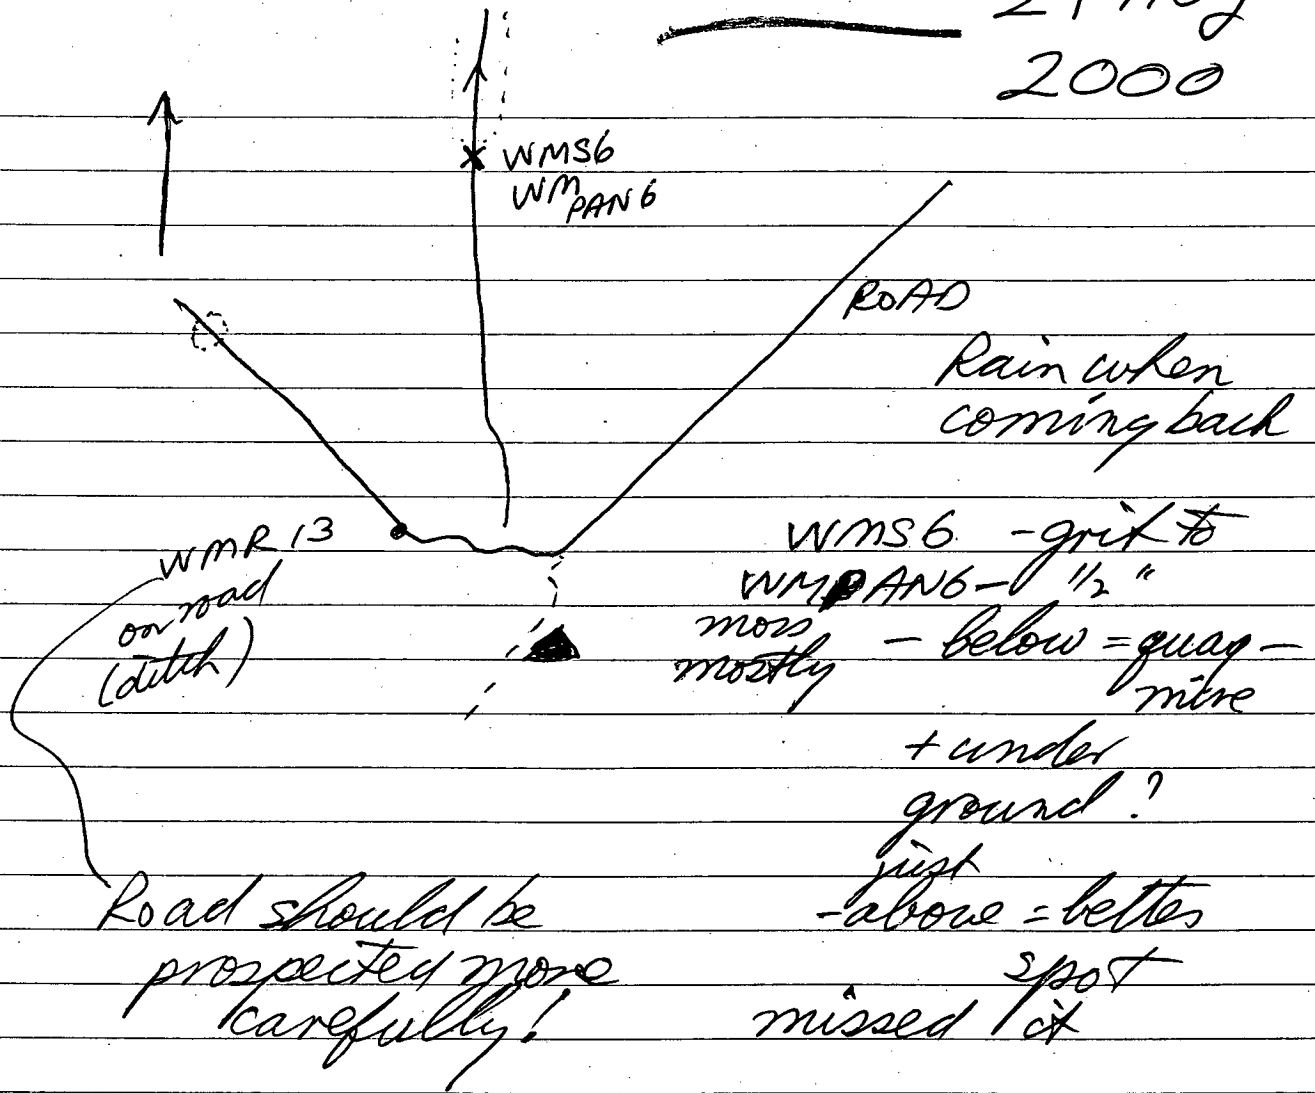 Aug
2000
WMS6
WM PAN 6
ROAD
Rain when
coming back
WMR 13
on road
(ditch)
WMS6 - grit to
WMPAN6 - 1/2 "
moss
mostly
- below = quag-
mire
+ under
ground?
just
- above = better
spot
missed it
Road should be
prospected more
carefully!